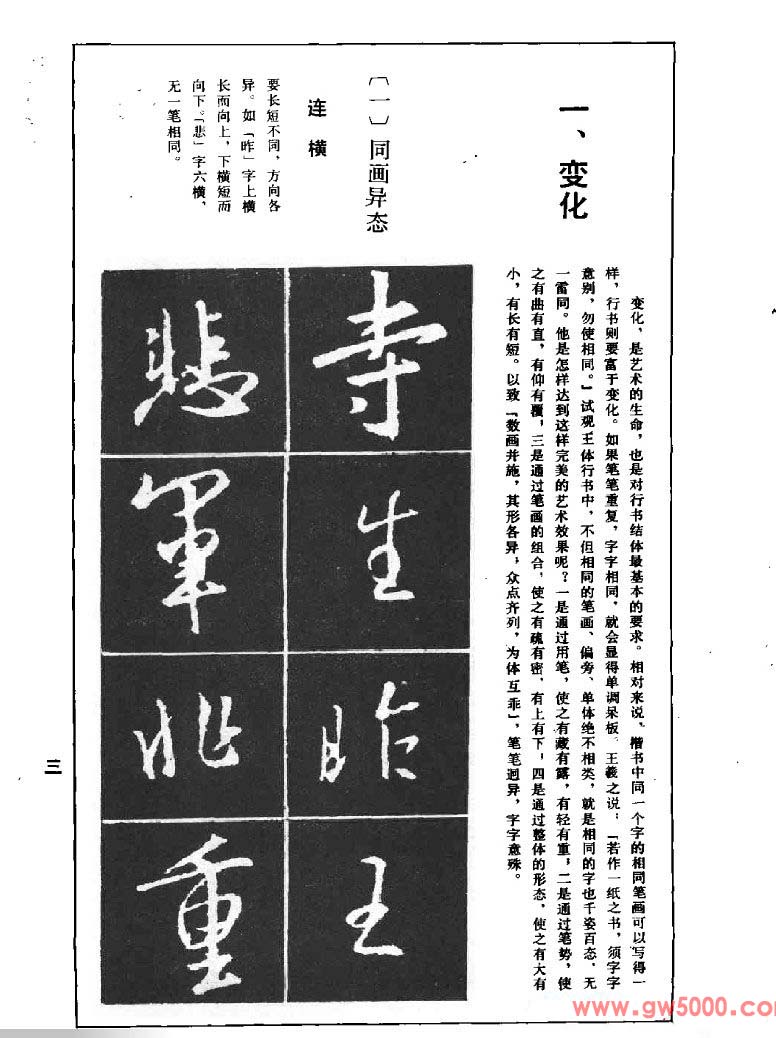 一、变化
变化，是艺术的生命，也是对行书结体最基本的要求。相对来说，楷书中同一个字的相同笔画可以写得一
样，行书则要富于变化。如果笔笔重复，字字相同，就会显得单调呆板。王羲之说：「若作一纸之书，须字字
意别，勿使相同。」试观王体行书中，不但相同的笔画、偏旁、单体绝不相类，就是相同的字也千姿百态，无
一雷同。他是怎样达到这样完美的艺术效果呢？一是通过用笔，使之有藏有露，有轻有重；二是通过笔势，使
之有曲有直，有仰有覆；三是通过笔画的组合，使之有疏有密，有上有下；四是通过整体的形态，使之有大有
小，有长有短。以致「数画并施，其形各异，众点齐列，为体互乖」，笔笔迥异，字字意殊。
〔一〕同画异态
连横
要长短不同，方向各
异。如「昨」字上横
长而向上，下横短而
向下。「悲」字六横，
无一笔相同。
寺
生
昨
王
悲
军
非
重
三
www.gw5000.com